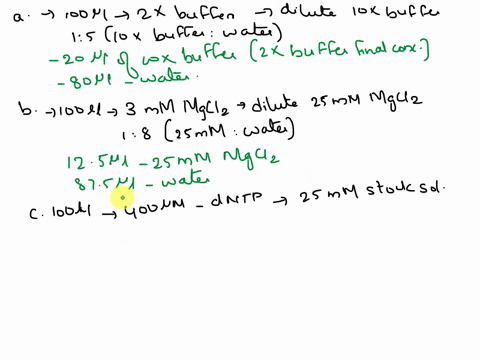 a. → 100 μl → 2x buffer → dilute 10x buffer
1:5 (10x buffer : water)
- 20 μl of 10x buffer (2x buffer final cox.)
- 80 μl - water.
b. → 100 μl → 3 mM MgCl2 → dilute 25 mM MgCl2
1:8 (25mM : water)
12.5 μl - 25 mM MgCl2
87.5 μl - water
c. 100 μl → 400 μM - dNTP → 25 mM stock sol.